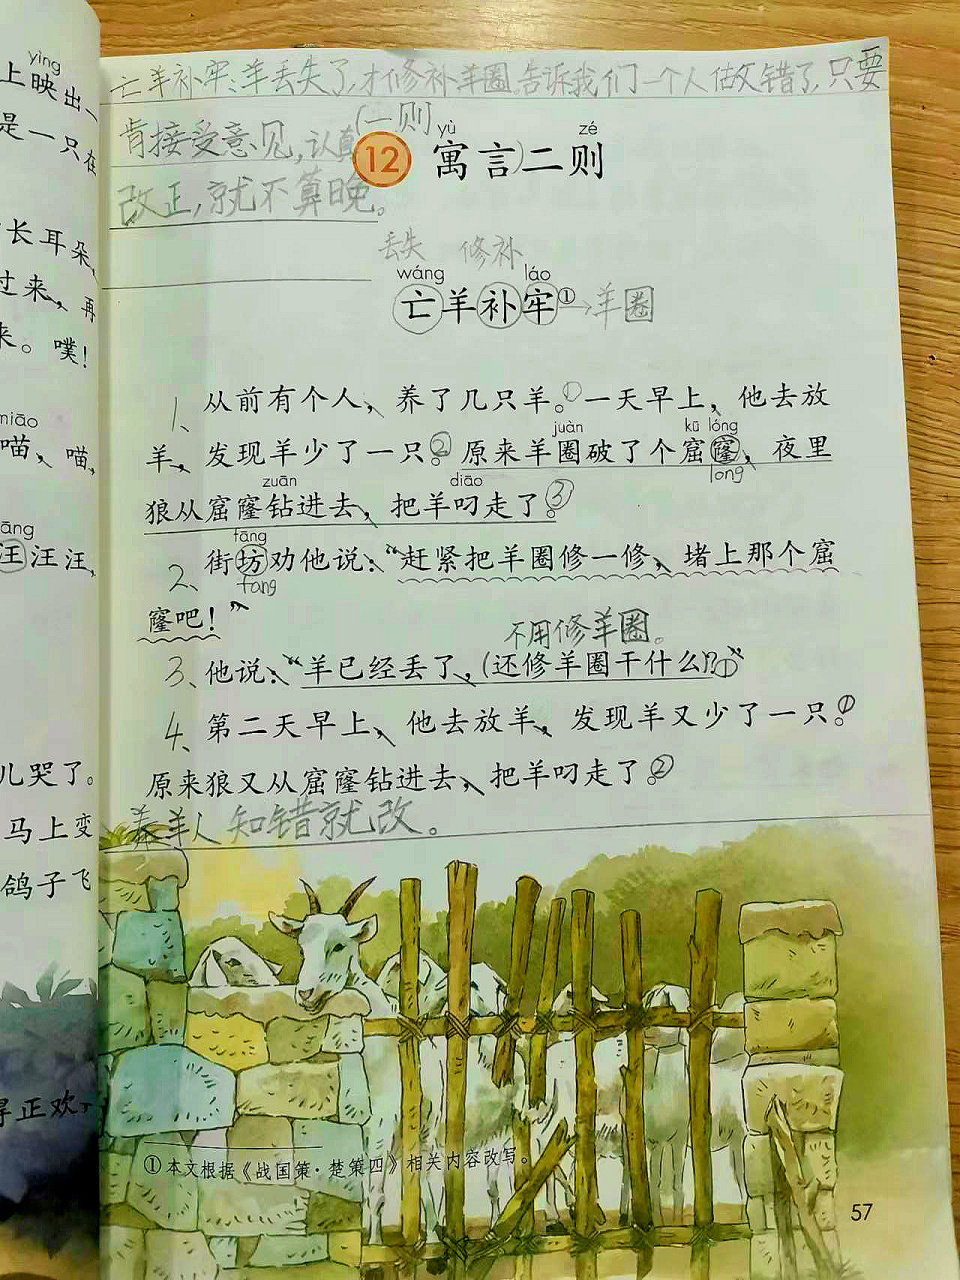 yìng
上映出一
是一只在
长耳朵,
过来,再
来。噗!
miāo
喵,喵,
āng
汪汪汪,
儿哭了。
马上变
鸽子飞
得正欢,
亡羊补牢:羊丢失了,才修补羊圈。告诉我们一个人做错了,只要
肯接受意见,认真
改正,就不算晚。
(一则)
yù zé
12 寓言二则
丢失 修补
wáng láo
亡羊补牢① →羊圈
1、从前有个人,养了几只羊。①一天早上,他去放
羊,发现羊少了一只。②原来羊圈破了个窟窿,夜里
juàn kū lóng
long
zuān diāo
狼从窟窿钻进去,把羊叼走了。③
fāng
2、街坊劝他说:“赶紧把羊圈修一修,堵上那个窟
fang
窿吧!”
不用修羊圈。
3、他说:“羊已经丢了,(还修羊圈干什么)?”①
4、第二天早上,他去放羊,发现羊又少了一只。①
原来狼又从窟窿钻进去,把羊叼走了。②
养羊人知错就改。
①本文根据《战国策·楚策四》相关内容改写。
57